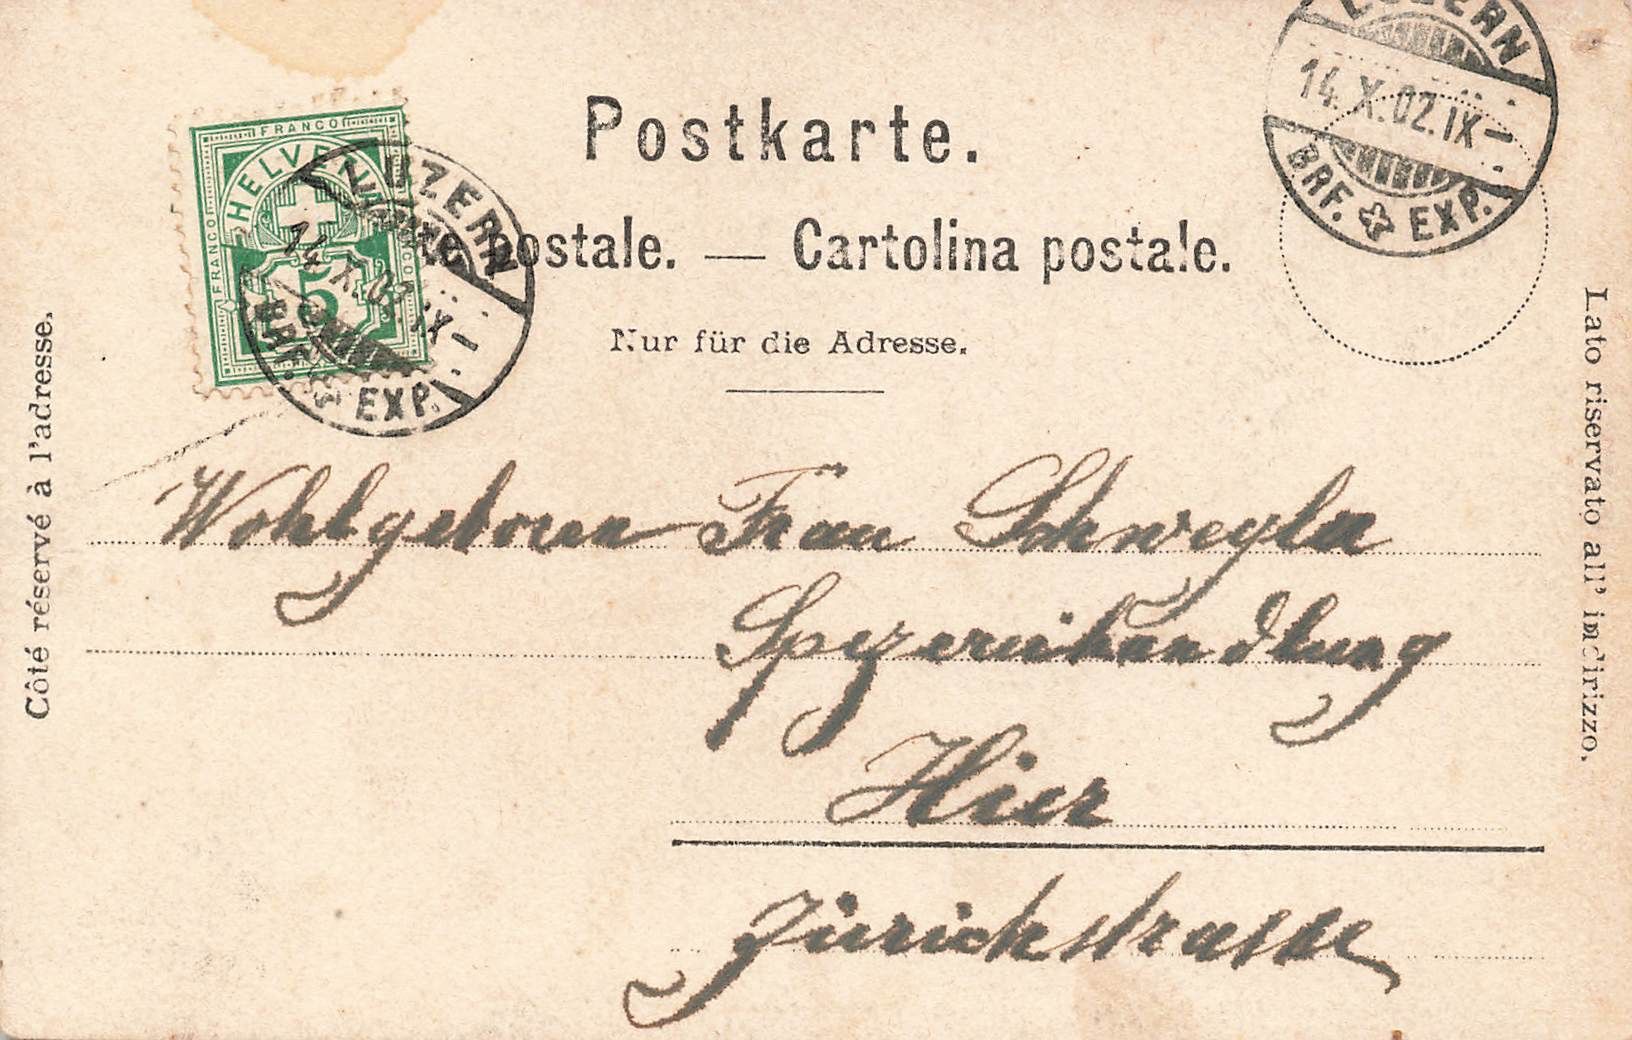 Postkarte.
Carte postale. — Cartolina postale.
Nur für die Adresse.
Côté réservé à l'adresse.
Lato riservato all' indirizzo.
FRANCO
FRANCO
FRANCO
HELVETIA
5
LUZERN
14. X. 02. IX
BRF. EXP.
LUZERN
14. X. 02. IX
BRF. EXP.
Wohlgeboren Frau Schwegler
Spezereihandlung
Hier
Zürichstrasse